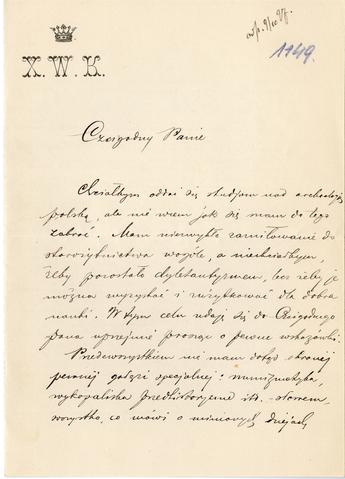 odp. 9/10 87.
1949.
X. W. K.
Czcigodny Panie
Chciałbym oddać się studjom nad archeologją
polską, ale nie wiem jak się mam do tego
zabrać. Mam niezwykłe zamiłowanie do
starożytnictwa wogóle, a niechciałbym,
żeby pozostało dyletantyzmem, lecz żeby je
można wyzyskać i zużytkować dla dobra
nauki. W tym celu udaję się do Czcigodnego
pana uprzejmie prosząc o pewne wskazówki.
Przedewszystkiem nie mam dotąd obranej
pewnej gałęzi specjalnej: numizmatyka,
wykopaliska przedhistoryczne itd. słowem,
wszystko, co mówi o minionych dziejach